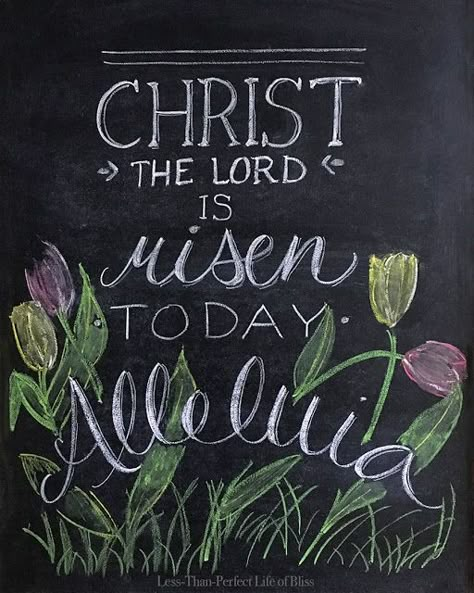 CHRIST
THE LORD
IS
risen
TODAY.
Alleluia
Less-Than-Perfect Life of Bliss